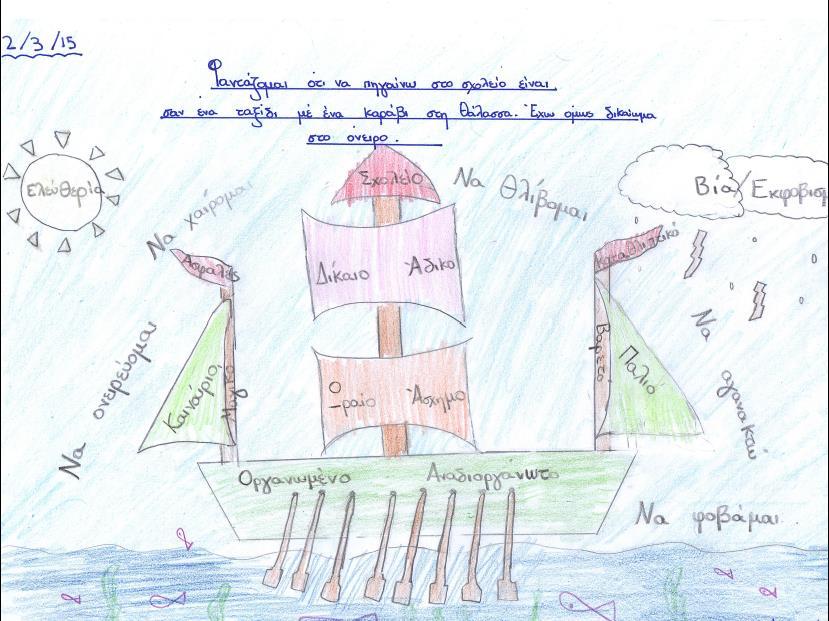 2/3/15
Φαντάζομαι ότι να πηγαίνω στο σχολείο είναι
σαν ένα ταξίδι μέ ένα καράβι στη θάλασσα. Έχω όμως δικαίωμα
στο όνειρο.
Ελευθερία
Να χαίρομαι
Σχολείο
Να θλίβομαι
Βία/Εκφοβισμ
Ασφαλές
Δίκαιο Άδικο
Καταθλιπτικό
Να ονειρεύομαι
Καινούριο
Βαρετό
Παλιό
Να αγανακτώ
Ωραίο Άσχημο
Οργανωμένο Αναδιοργάνωτο
Να φοβάμαι